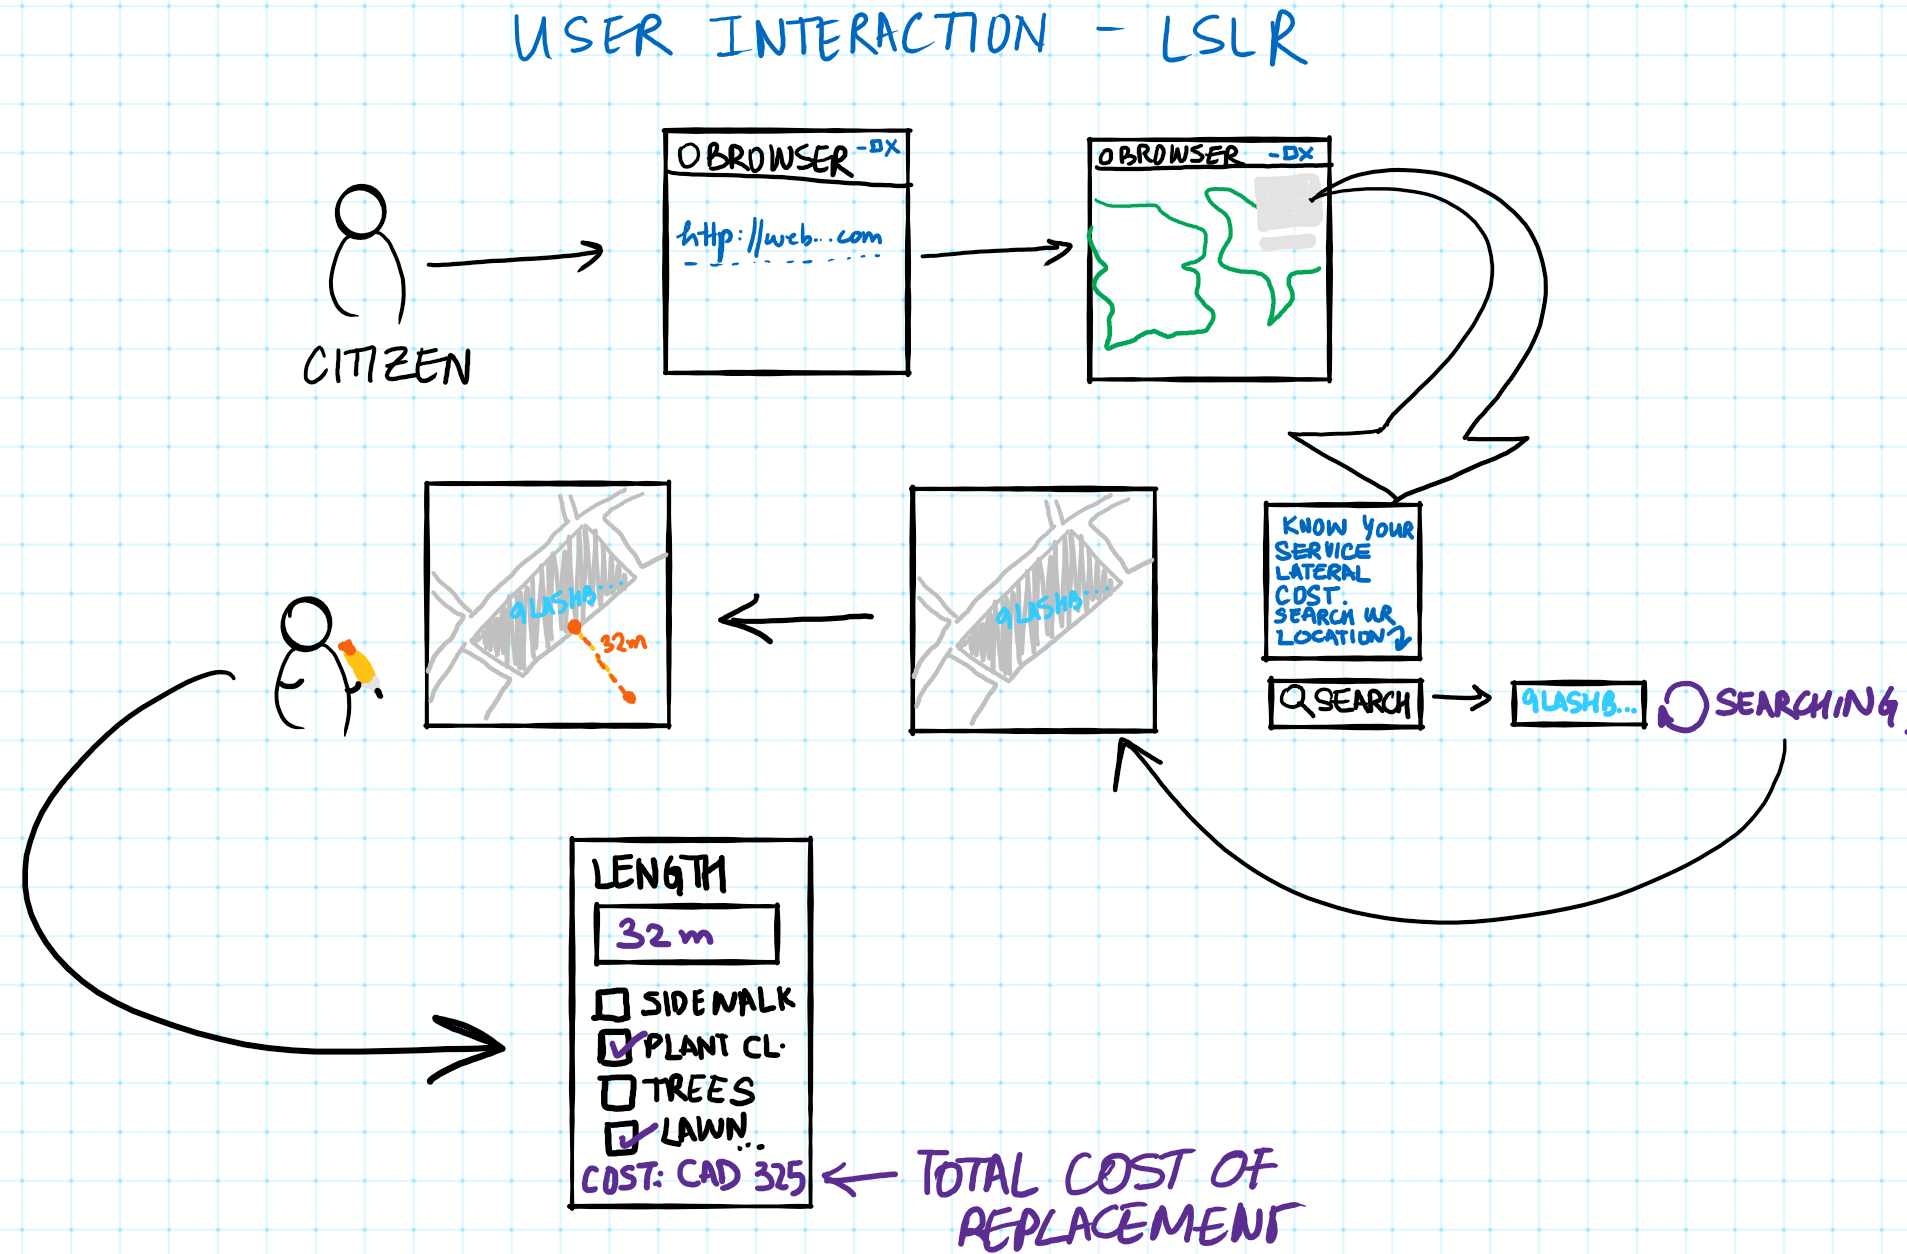 USER INTERACTION - LSLR
CITIZEN
BROWSER -□X
http://web...com
BROWSER -□X
KNOW YOUR
SERVICE
LATERAL
COST.
SEARCH UR
LOCATION
SEARCH
9LASHB...
SEARCHING
9LASHB...
9LASHB...
32m
LENGTH
32m
SIDEWALK
PLANT CL.
TREES
LAWN...
COST: CAD 325
TOTAL COST OF
REPLACEMENT